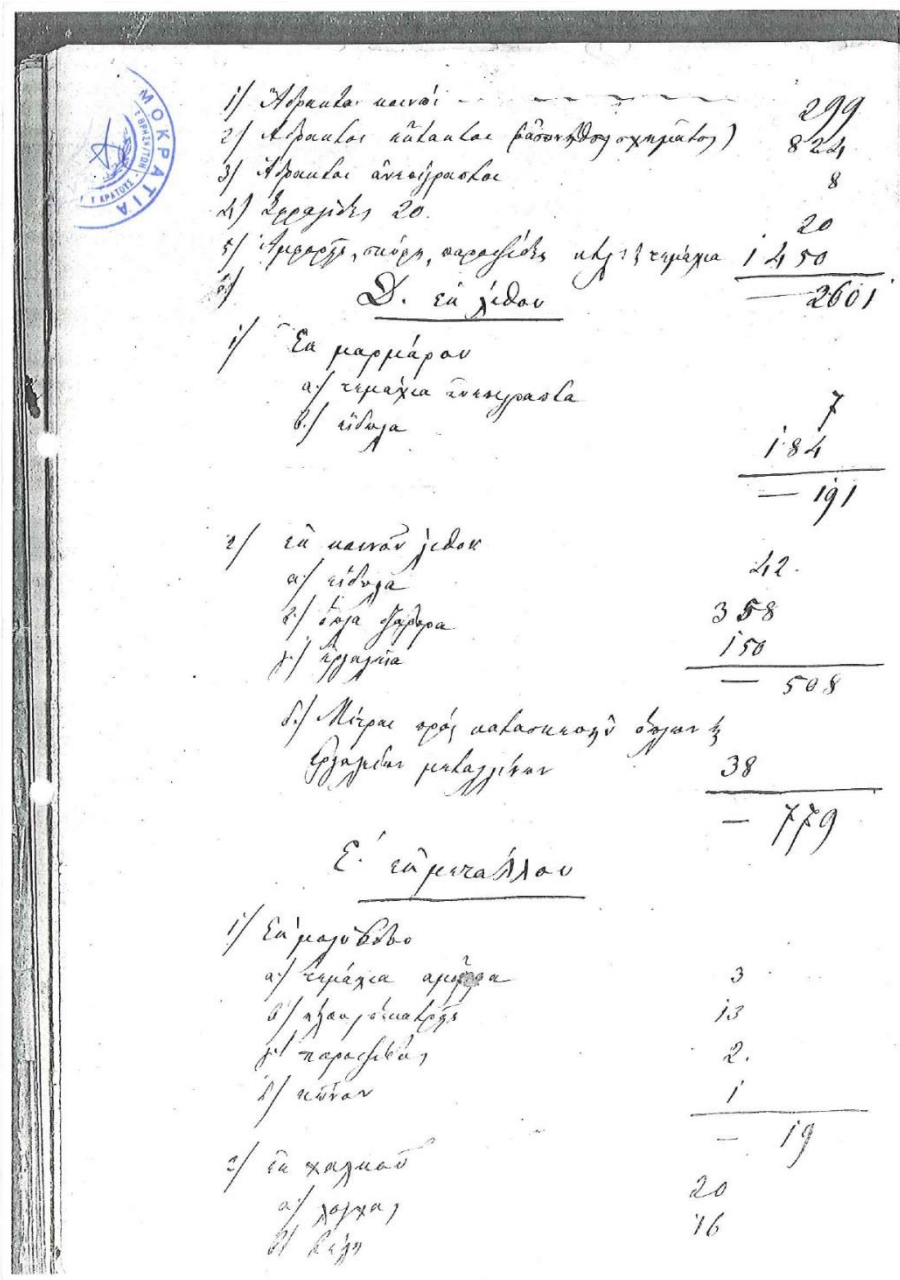 ΜΟΚΡΑΤΙΑ
ΚΡΑΤΟΥΣ
1/ Ἄδρακτοι κοινοὶ 299
2/ Ἄδρακτοι σχήματος) 824
3/ Ἄδρακτοι ἀνεπίγραφοι 8
4/ Σφραγίδες 20. 20
5/ Ἀμφορῆς, σκύφη, παροψίδες κτλ τεμάχια 1450
6/ — 2601
Δ. ἐκ λίθου
1/ Ἐκ μαρμάρου
α/ τεμάχια ἐνεπίγραφα 7
β/ εἴδωλα 184
— 191
2/ ἐκ κοινοῦ λίθου
α/ εἴδωλα 42.
β/ ὅπλα διάφορα 358
γ/ ἐργαλεῖα 150
— 508
δ/ Μῆτραι πρὸς κατασκευὴν ὅπλων
ἐργαλείων μεταλλίνων 38
— 779
Ε. ἐκ μετάλλου
1/ Ἐκ μολύβδου
α/ τεμάχια ἄμορφα 3
β/ 13
γ/ παροψίδας 2.
δ/ κῶνον 1
— 19
2/ ἐκ χαλκοῦ
α/ λόγχας 20
β/ βέλη 16